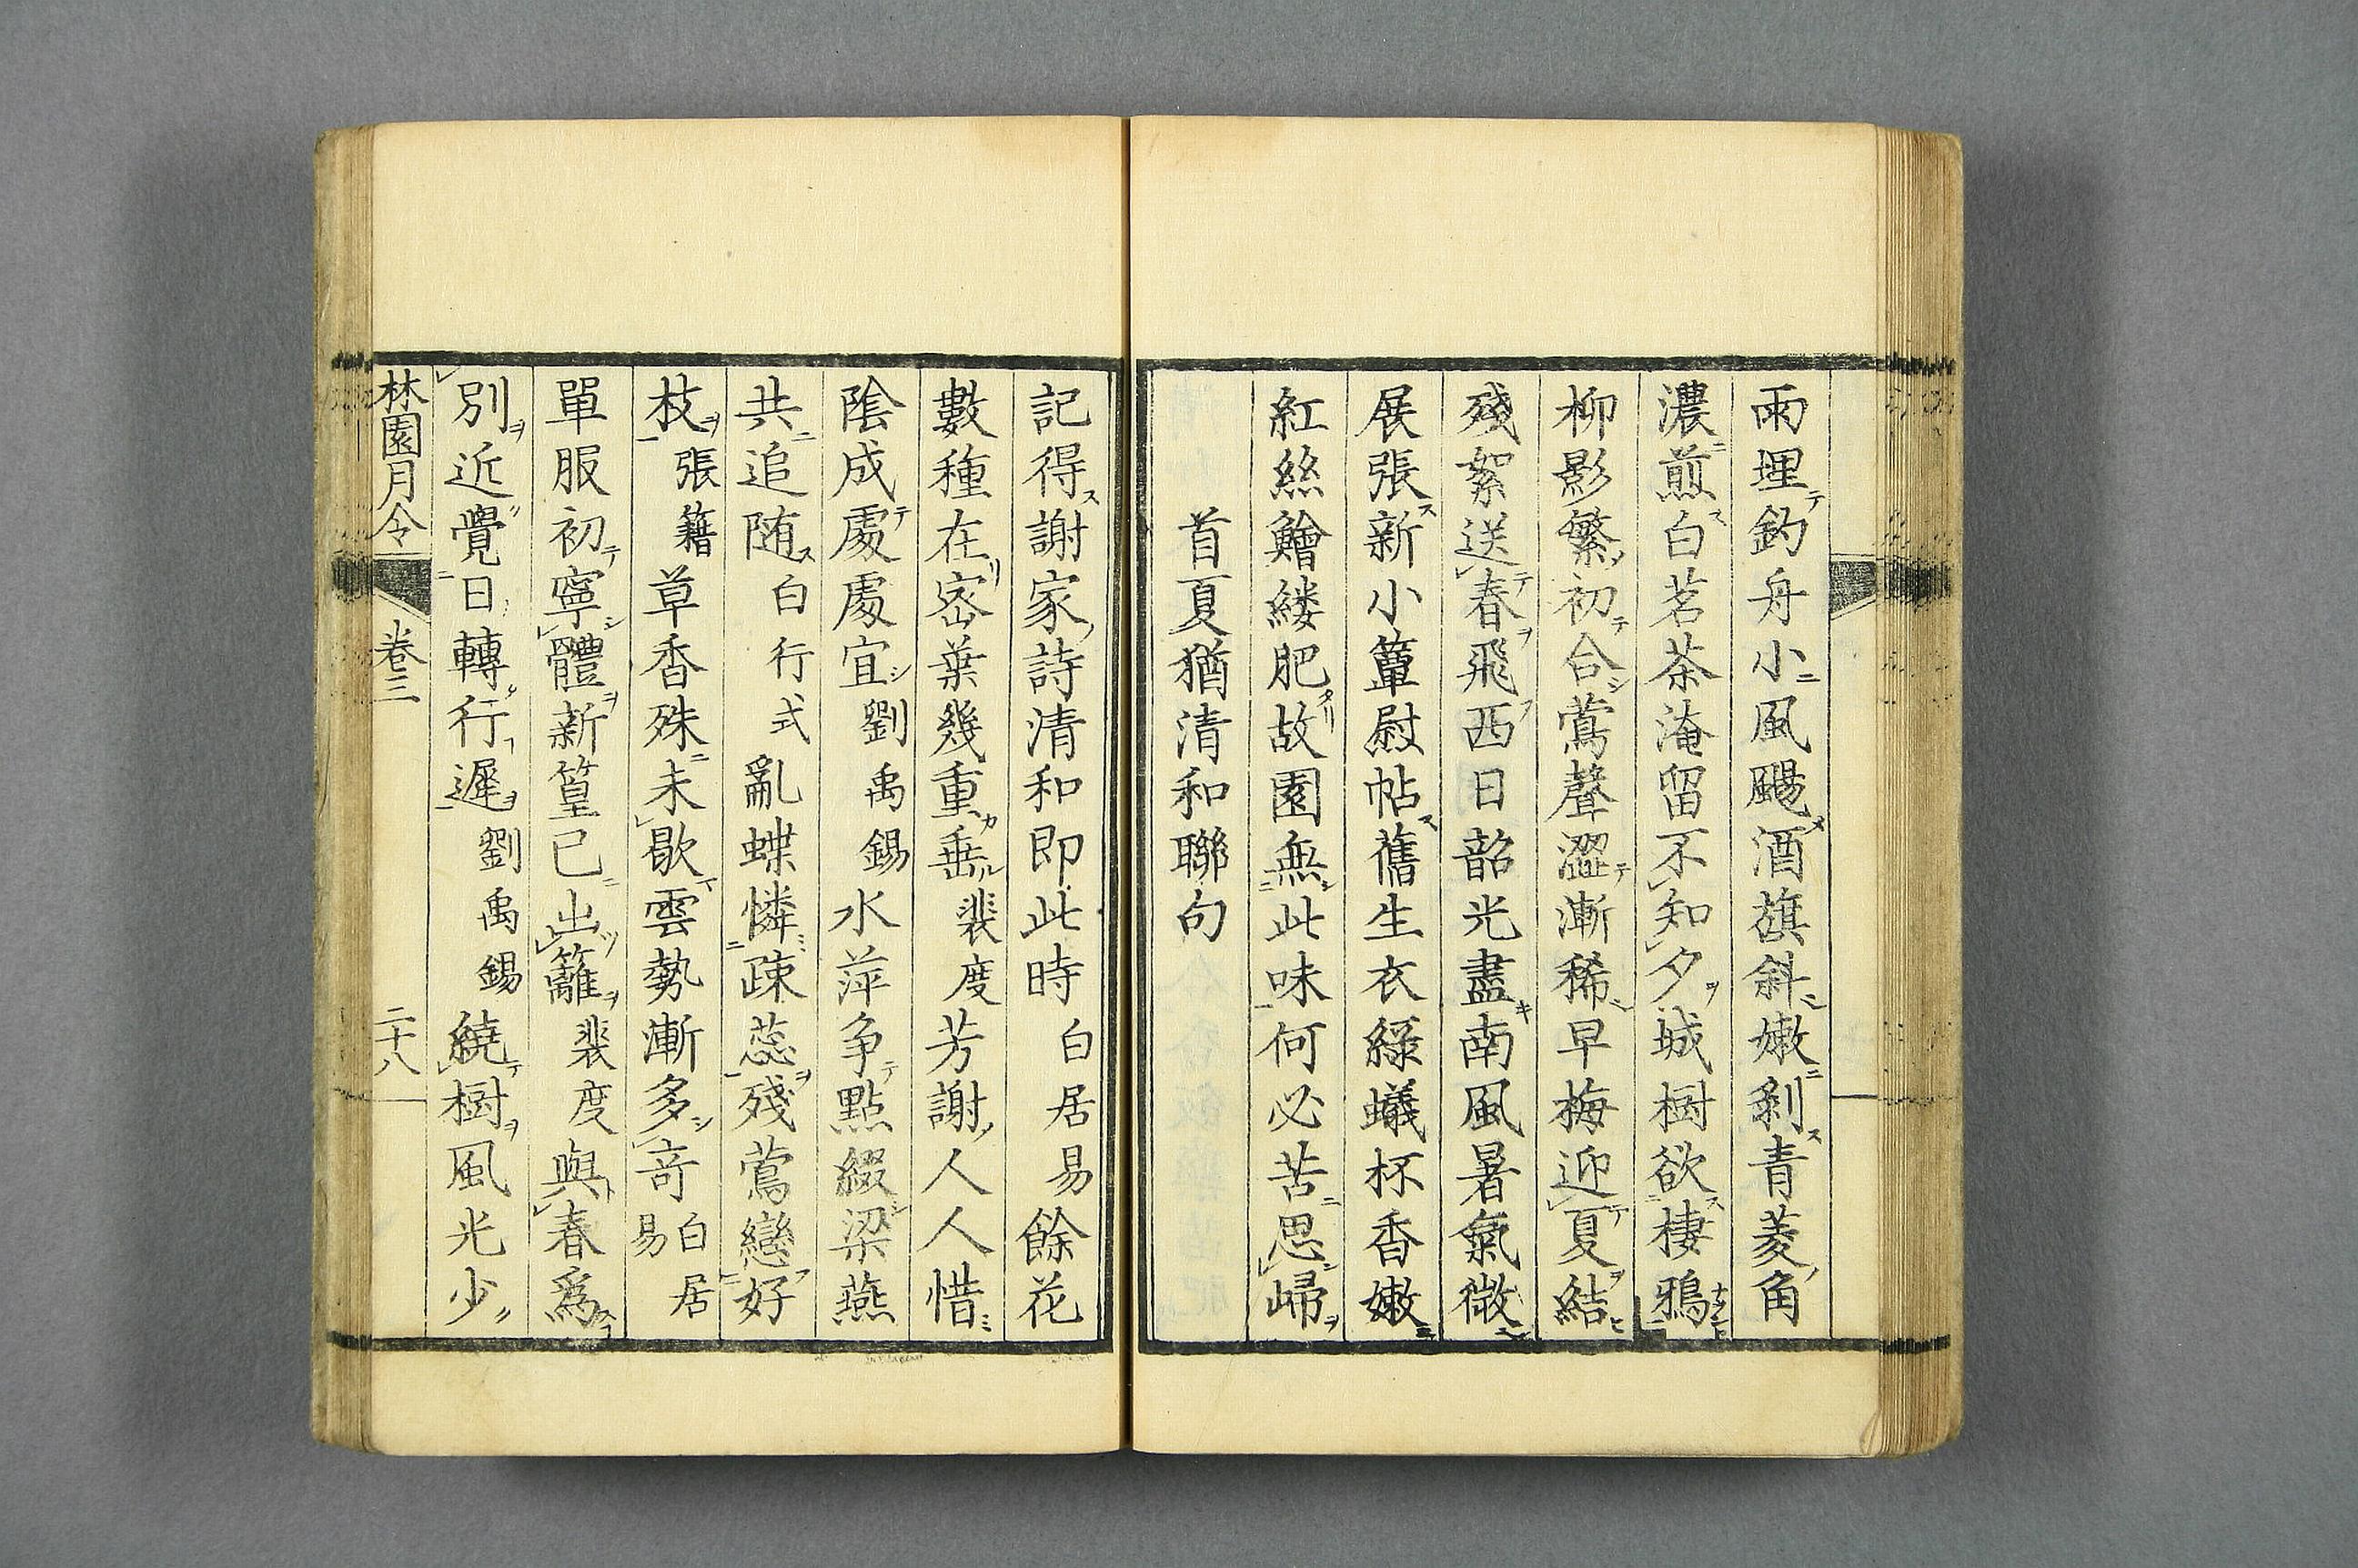 雨埋釣舟小風颺酒旗斜嫩剝青菱角
濃煎白茗茶淹留不知夕城樹欲棲鴉
柳影繁初合鶯聲澀漸稀早梅迎夏結
殘絮送春飛西日韶光盡南風暑氣微
展張新小簟尉帖舊生衣綠蟻杯香嫩
紅絲鱠縷肥故園無此味何必苦思歸
首夏猶清和聯句
記得謝家詩清和即此時白居易餘花
數種在密葉幾重垂裴度芳謝人人惜
陰成處處宜劉禹錫水萍争點綴梁燕
共追随白行式亂蝶憐疎蕊殘鶯戀好
枝張籍草香殊未歇雲勢漸多奇白居易
單服初寧體新篁已出籬裴度與春爲
別近覺日轉行遲劉禹錫繞樹風光少
林園月令 卷三 二十八